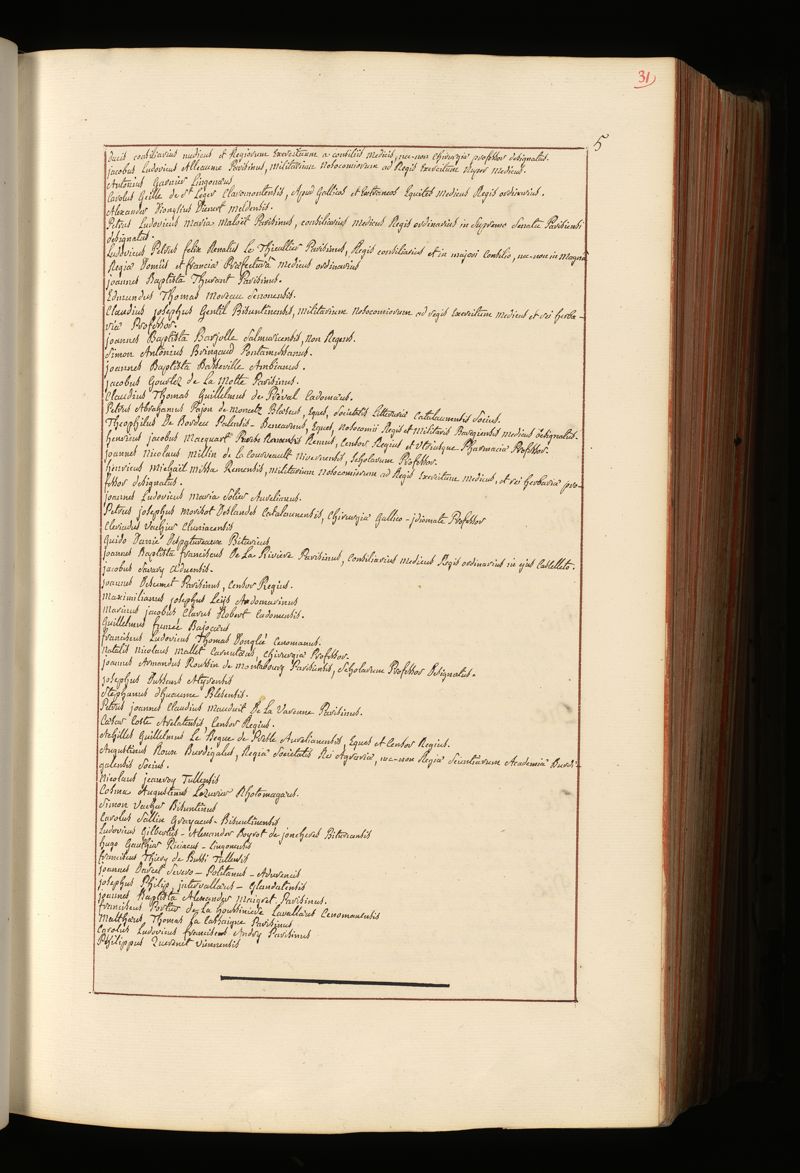 31
5
Ducis consiliarius medicus et Regiorum Exercituum a consiliis medicis, nec-non Chirurgiæ professor designatus.
jacobus Ludovicus Alleaume Parisinus, militarium Nosocomiorum ad Regis Exercitum nuper Medicus.
Antonius Garnier Lingonæus
Carolus Geille de St Leger Claromontensis, Apud Gallicos et Extraneos Equites Medicus Regis ordinarius.
Alexander Dionysius Dienert Meldensis.
Petrus Ludovicus Maria Maloët Parisinus, consiliarius medicus Regis ordinarius in supremo Senatu Parisiensi
designatus.
Ludovicus Petrus felix Renatus Le Thieullier Parisinus, Regis consiliarius et in majori Consilio, nec-non in Magnâ
Regiæ Domûs et franciæ Præfecturâ Medicus ordinarius
joannes Baptista Thurant Parisinus.
Edmundus Thomas Moreau Senonensis.
Claudius josephus Gentil Bisuntinensis, militarium Nosocomiorum ad regis Exercitum Medicus et rei herba-
riæ Professor.
joannes Baptista Barjolle Salmuriensis, Non Regens.
Simon Antonius Bringaud Pontamussanus.
joannes Baptista Basseville Ambianus.
jacobus Gourlez de La Motte Parisinus.
Claudius Thomas Guillelmus de Préval Cadomæus.
Petrus Abrahamus Pajon de moncetz Blæsus, Eques, Societatis Litterariæ Catalaunensis Socius.
Theophilus De Bordeu Palensis-Benearnus, Eques, Nosocomii Regis et Militaris Baregiensis medicus designatus.
henricus jacobus Macquart Remensis Remus, Censor Regius et Utriusque Pharmaciæ Professor.
joannes Nicolaus Millin de la Courveault Nivernensis, Scholarum Professor.
henricus Michaël Missa Remensis, militarium Nosocomiorum ad Regis Exercitum medicus, et rei herbariæ pro-
fessor designatus.
joannes Ludovicus Maria Solier Aurelianus.
Petrus josephus Morisot Deslandes Catalaunensis, Chirurgiæ Gallico-jdiomate Professor
Cleriadus Vachier Cluniacensis
Guido Daniel Bituricus
joannes Baptista franciscus De La Riviere Parisinus, consiliarius medicus Regis ordinarius in ejus Castelleto.
jacobus Savary Æduensis.
joannes Descemet Parisinus, Censor Regius.
Maximilianus josephus Leijs Audomarinus
Marinus jacobus Clarus Robert Cadomensis.
Guillelmus fumée Bajocæus
franciscus Ludovicus Thomas Donglée Cenomanus.
Natalis Nicolaus Mallet Carnutæus, Chirurgiæ Professor.
joannes Armandus Roussin de Montabourg Parisiensis, Scholarum Professor Designatus.
josephus Dussens Atyrensis
Stephanus dhucaume Blesensis.
Petrus joannes Claudius Mauduit De La Varenne Parisinus.
Cæsar Coste Arelatensis, Censor Regius.
Achilles Guillelmus Le Begue de Presle Aurelianensis, Eques et Censor Regius.
Augustinus Roux Burdigalus, Regiæ Societatis Rei Agrariæ, nec-non Regiæ Scientiarum Academiæ Burdi-
galensis Socius.
Nicolaus jeanroy Tullensis
Cosma Augustinus Lezurier Rhotomagæus.
Simon Vacher Bisuntinus
Carolus Sallin Grayacus-Bisuntinensis
Ludovicus Gilbertus-Alexander Boyrot de joncheres Bituricensis
hugo Gauthier Riciacus-Lingonensis
franciscus Thiery de Bussi Tullensis
joannes Darcet Severo-Politanus-Adurensis
josephus Philip, jntervallæus-Glandatensis
joannes Baptista Alexander Maigret Parisinus.
franciscus Portier de La houssiniere Lavallæus Cenomanensis
Matthæus Thomas La Cassaigne Parisinus
Carolus Ludovicus franciscus Andry Parisinus
Philippus Quesnet Viennensis